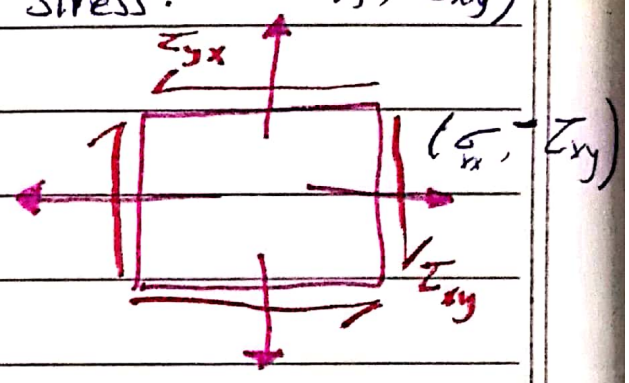 Stress.
τyx
(σxx, -τxy)
τxy